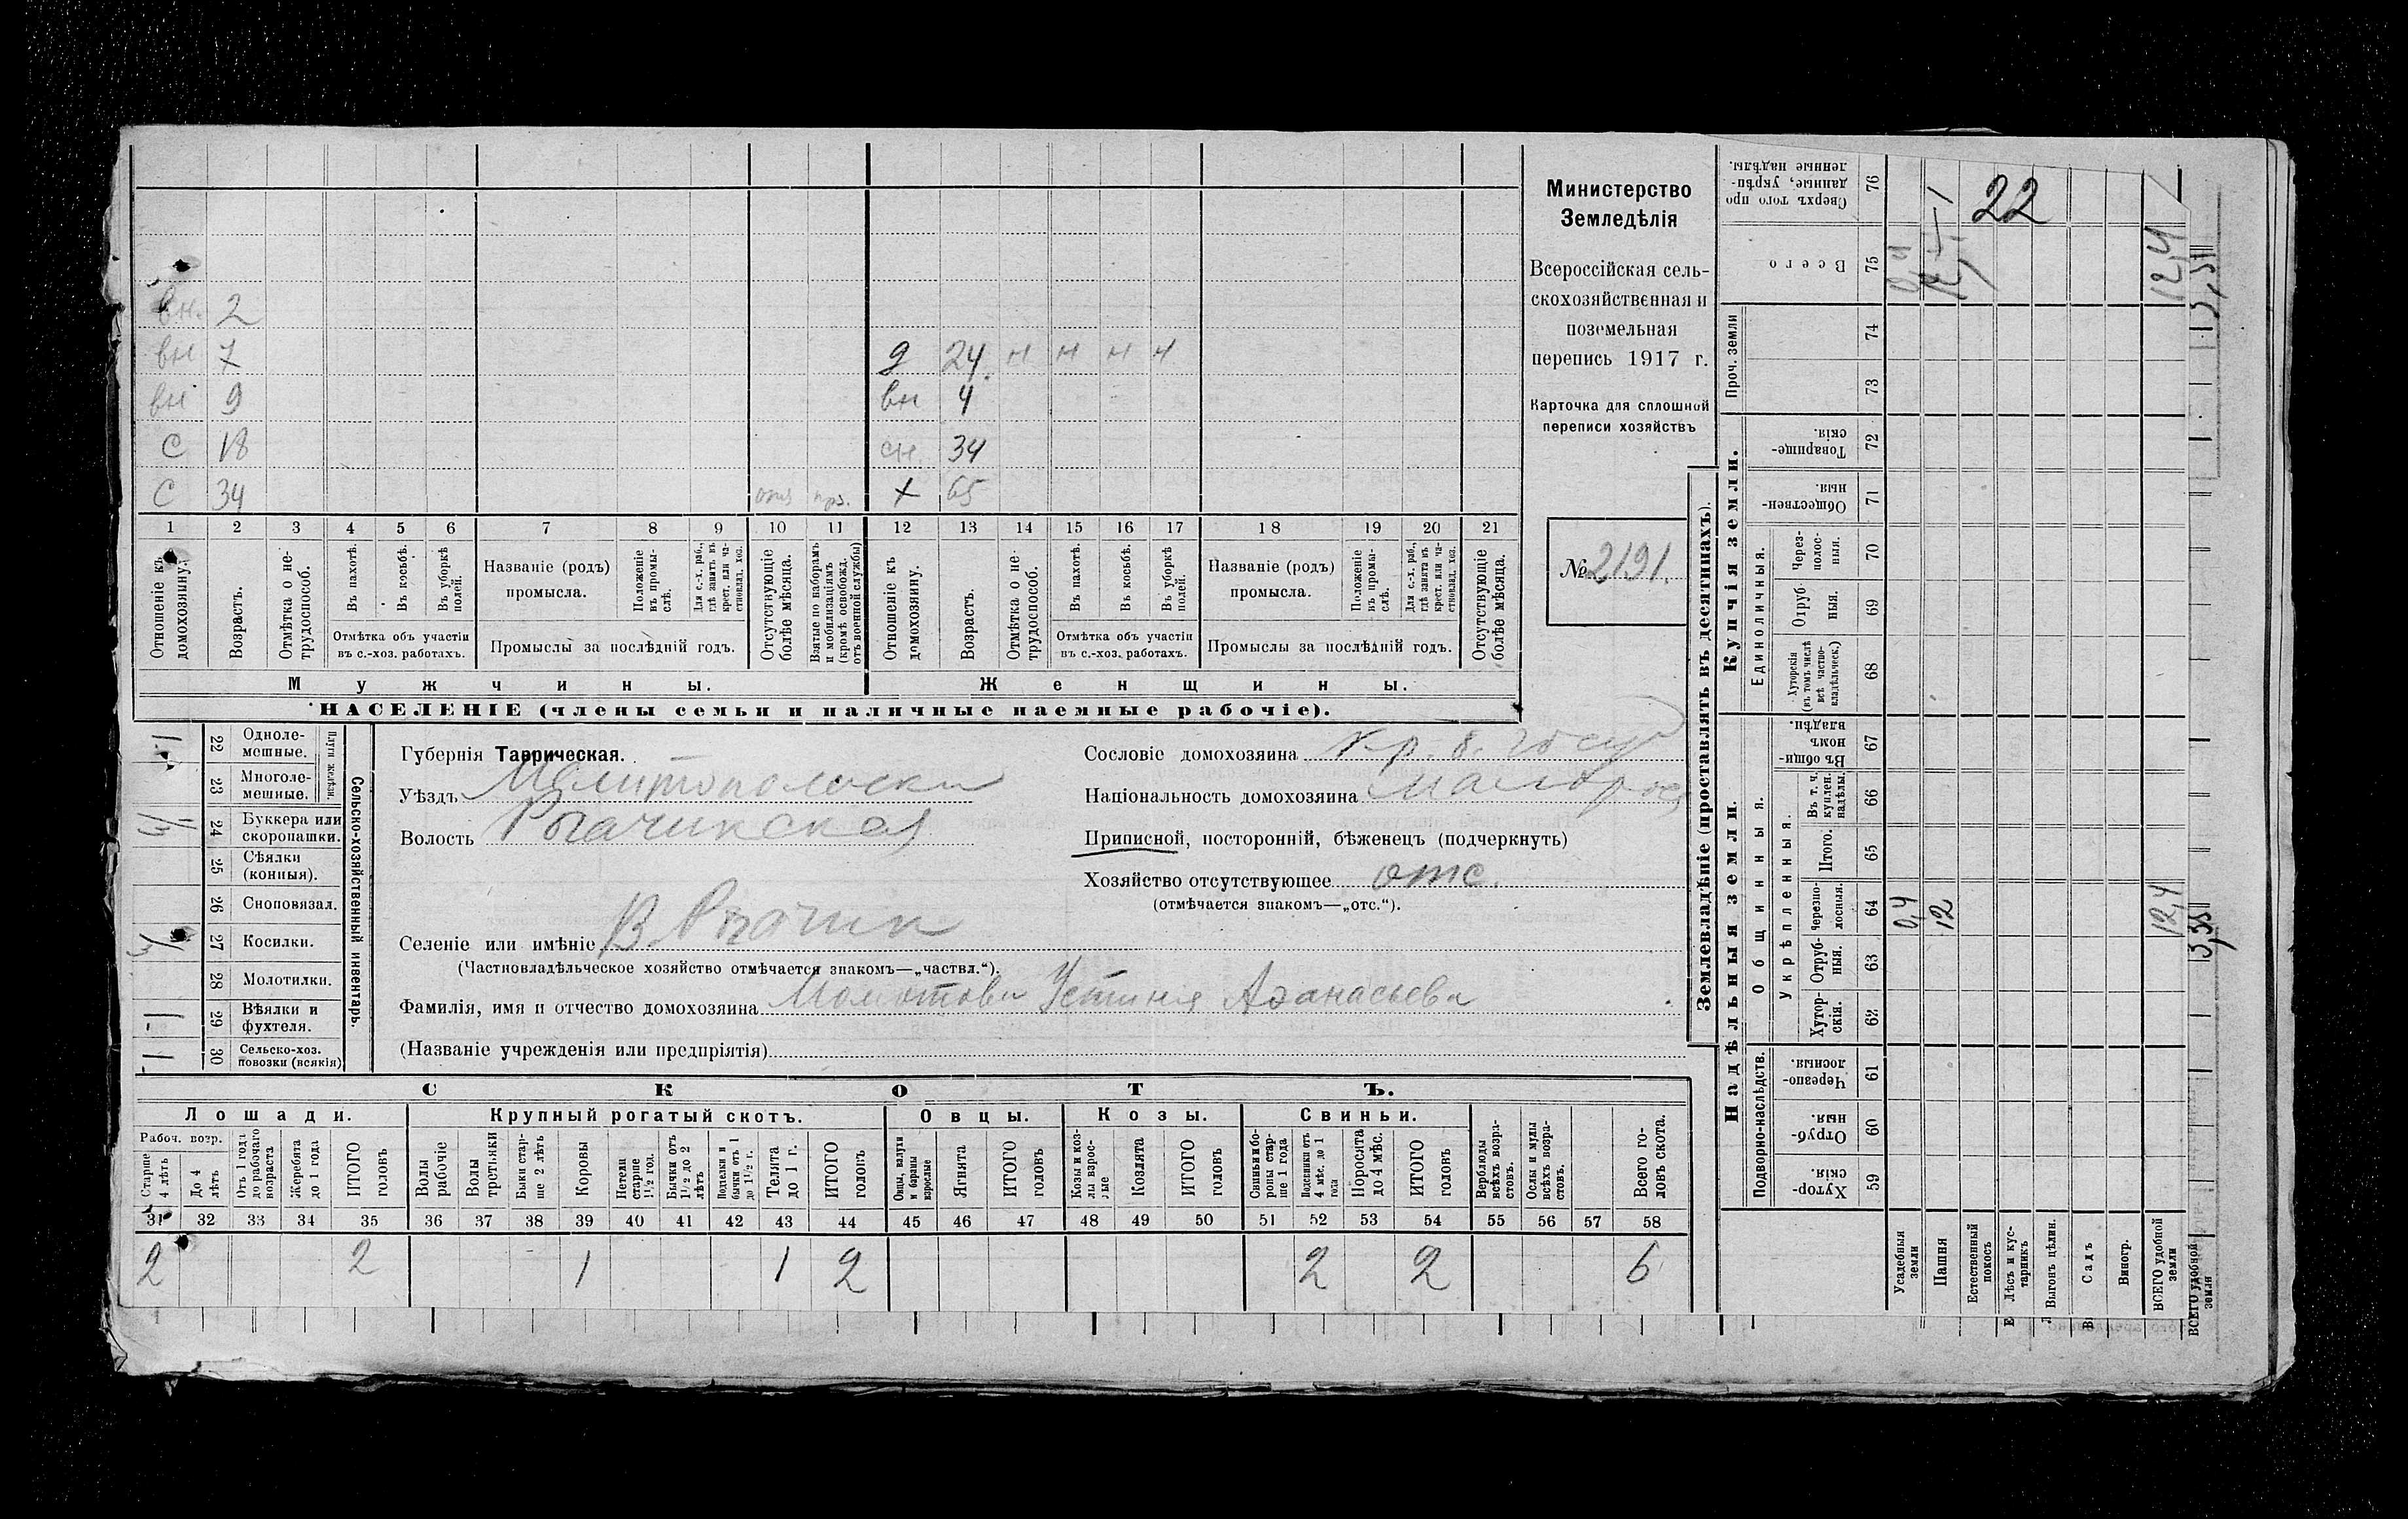 Министерство
Земледѣлія
Всероссійская сель-
скохозяйственная и
поземельная
перепись 1917 г.
Карточка для сплошной
переписи хозяйствъ
№ 2191.
вн. 2
вн 7 д 24 н н н н
вн 9 вн 4
С 18 сн. 34
С 34 х 65
1 2 3 4 5 6 7 8 9 10 11 12 13 14 15 16 17 18 19 20 21
Отношеніе къ домохозяину.
Возрастъ.
Отмѣтка о не-трудоспособ.
Въ пахотѣ.
Въ косьбѣ.
Въ уборкѣ полей.
Отмѣтка объ участіи
въ с.-хоз. работахъ.
Названіе (родъ)
промысла.
Положеніе въ промы-слѣ.
Для с.-х. раб., гдѣ занятъ въ крест. или ча-стновлад. хоз.
Промыслы за послѣдній годъ.
Отсутствующіе болѣе мѣсяца.
Взятые по наборамъ и мобилизаціямъ (кромѣ освобожд. отъ военной службы)
Отношеніе къ домохозяину.
Возрастъ.
Отмѣтка о не-трудоспособ.
Въ пахотѣ.
Въ косьбѣ.
Въ уборкѣ полей.
Отмѣтка объ участіи
въ с.-хоз. работахъ.
Названіе (родъ)
промысла.
Положеніе въ промы-слѣ.
Для с.-х. раб., гдѣ занята въ крест. или ча-стновлад. хоз.
Промыслы за послѣдній годъ.
Отсутствующіе болѣе мѣсяца.
Мужчины. Женщины.
НАСЕЛЕНІЕ (члены семьи и наличные наемные рабочіе).
Сельско-хозяйственный инвентарь.
Плуги желѣзн.
22 Однолемешные. 1
23 Многолемешные.
24 Буккера или скоропашки. 1/3
25 Сѣялки (конныя).
26 Сноповязал.
27 Косилки. 1/3
28 Молотилки.
29 Вѣялки и фухтеля. 1
30 Сельско-хоз. повозки (всякія) 1
Губернія Таврическая.
Уѣздъ Мелитопольски
Волость Рогачикская
Селеніе или имѣніе В. Рогачик
(Частновладѣльческое хозяйство отмѣчается знакомъ—„частвл.“).
Фамилія, имя и отчество домохозяина Устиния Афанасьева
(Названіе учрежденія или предпріятія)
Сословіе домохозяина кр. б. госуд
Національность домохозяина малорос
Приписной, посторонній, бѣженецъ (подчеркнуть)
Хозяйство отсутствующее отс.
(отмѣчается знакомъ—„отс.“).
СКОТЪ.
Лошади. Крупный рогатый скотъ. Овцы. Козы. Свиньи.
Рабоч. возр.
Старше 4 лѣтъ
До 4 лѣтъ
Отъ 1 года до рабочаго возраста
Жеребята до 1 года
ИТОГО головъ
Волы рабочіе
Волы третьяки
Быки стар-ше 2 лѣтъ
Коровы
Нетели старше 1½ год.
Бычки отъ 1½ до 2 лѣтъ
Подтелки и бычки отъ 1 до 1½ г.
Телята до 1 г.
ИТОГО головъ
Овцы, валухи и бараны взрослые
Ягнята
ИТОГО головъ
Козы и коз-лы взрос-лые
Козлята
ИТОГО головъ
Свиньи и бо-ровы стар-ше 1 года
Подсвинки отъ 4 мѣс. до 1 года
Поросята до 4 мѣс.
ИТОГО головъ
Верблюды всѣхъ возра-стовъ.
Ослы и мулы всѣхъ возра-стовъ.
Всего го-ловъ скота.
31 32 33 34 35 36 37 38 39 40 41 42 43 44 45 46 47 48 49 50 51 52 53 54 55 56 57 58
2 2 1 1 2 2 2 6
Землевладѣніе (проставлять въ десятинахъ).
Надѣльныя земли. Купчія земли.
Подворно-наслѣдств.
Общинныя.
Укрѣпленныя.
Единоличныя.
Проч. земли
Сверхъ того про-данные, укрѣп-ленные надѣлы. 76
Всего 75
74
73
Товарище-скія. 72
Обществен-ныя. 71
Через-полос-ныя. 70
Отруб-ныя. 69
Хуторскія (въ томъ числѣ всѣ частно-владѣльческ.) 68
Въ общин-номъ владѣн. 67
Въ т. ч. куплен. надѣлы. 66
Итого. 65
Черезпо-лосныя. 64
Отруб-ныя. 63
Хутор-скія. 62
Черезпо-лосныя. 61
Отруб-ныя. 60
Хутор-скія. 59
Усадебныя земли 0,4
Пашня 12
Естественный покосъ
Лѣсъ и кус-тарникъ
Выгонъ цѣлин.
Садъ
Виногр.
ВСЕГО удобной земли 12,4 12,4
ВСЕГО удобной земли
22